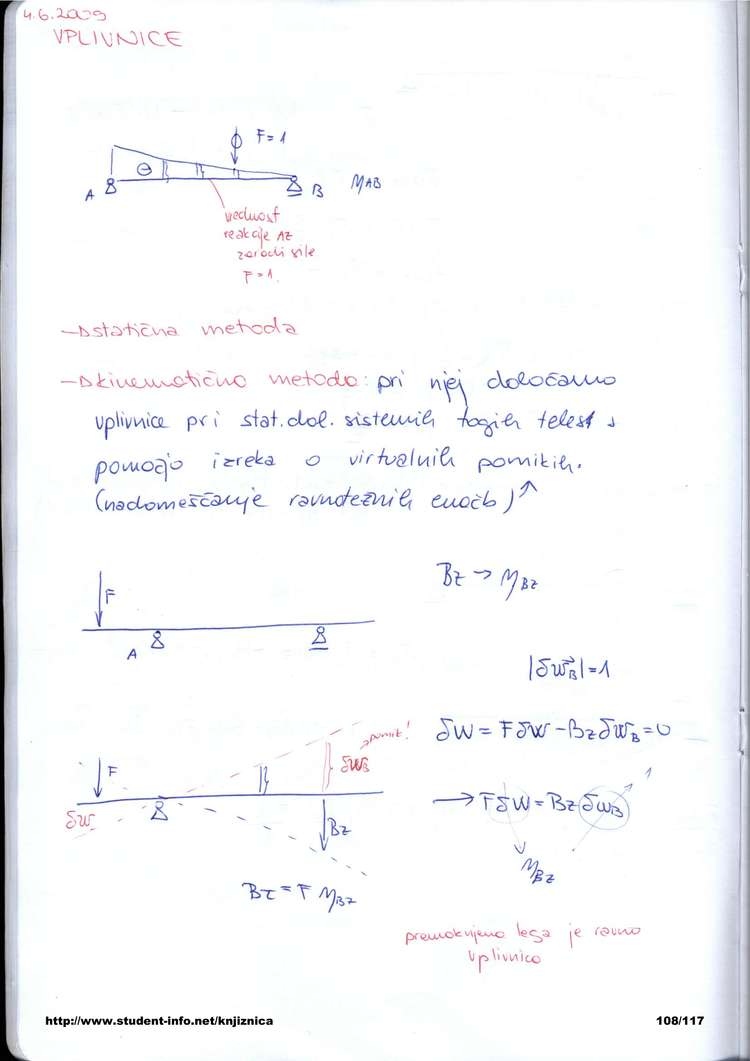 4.6.2009
VPLIVNICE
F=1
⊖
A
B
η_AB
vrednost
reakcije Az
zaradi sile
F=1.
→ statična metoda
→ kinematično metoda: pri njej določamo
vplivnice pri stat.dol. sistemih togih teles s
pomočjo izreka o virtualnih pomikih.
(nadomeščanje ravnotežnih enačb)↑
Bz → η_Bz
F
A
|δw⃗_B|=1
δW = Fδw - Bzδw_B = 0
pomik!
δw_B
F
δw
Bz
→ Fδw = Bz δw_B
1
η_Bz
Bz = F η_Bz
premaknjena lega je ravno
vplivnica
http://www.student-info.net/knjiznica
108/117